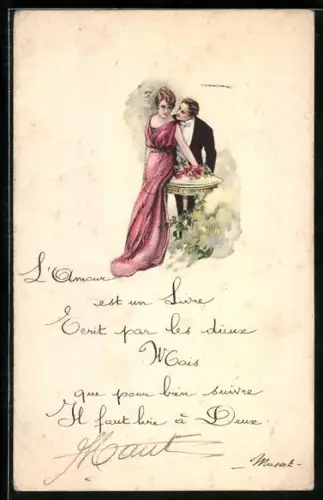 L'Amour
est un Livre
Ecrit par les dieux
Mais
que pour bien suivre
Il faut lire à Deux.
- Musset -